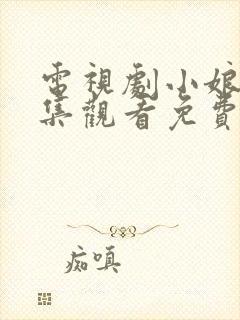 電視劇小娘
集觀看免費
痴嗔